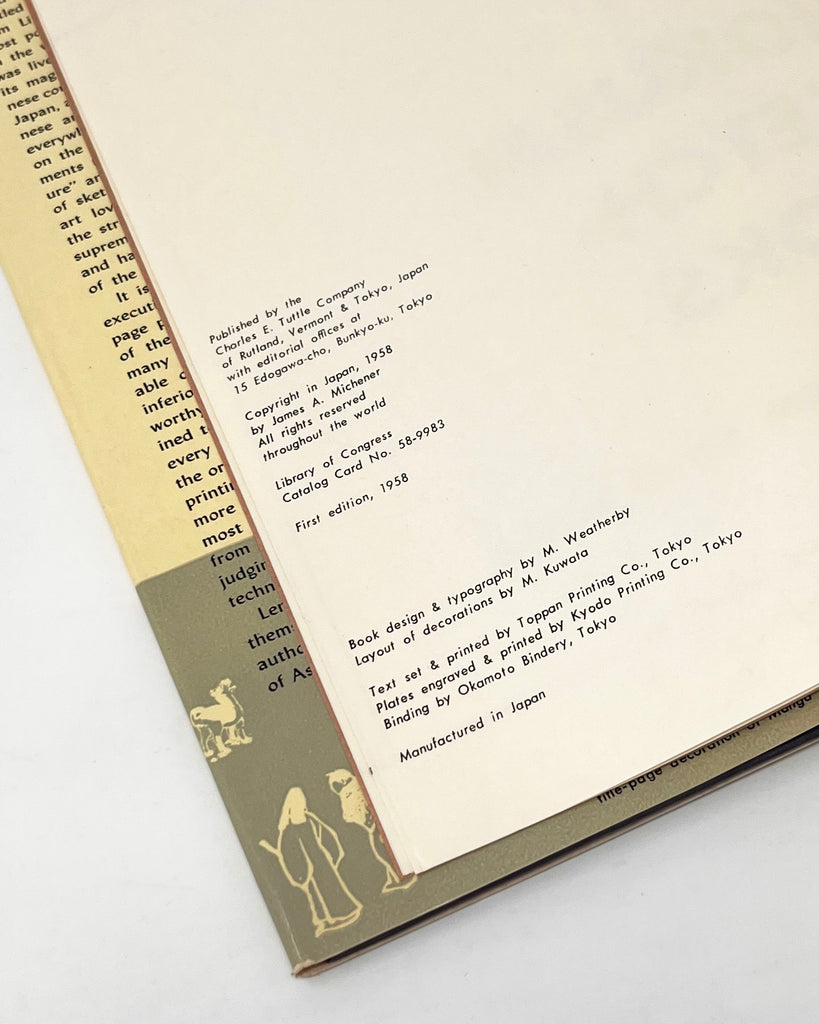 Published by the
Charles E. Tuttle Company
of Rutland, Vermont & Tokyo, Japan
with editorial offices at
15 Edogawa-cho, Bunkyo-ku, Tokyo
Copyright in Japan, 1958
by James A. Michener
All rights reserved
throughout the world
Library of Congress
Catalog Card No. 58-9983
First edition, 1958
Book design & typography by M. Weatherby
Layout of decorations by M. Kuwata
Text set & printed by Toppan Printing Co., Tokyo
Plates engraved & printed by Kyodo Printing Co., Tokyo
Binding by Okamoto Bindery, Tokyo
Manufactured in Japan
the
was
its
Japan,
on the
ments
ure"
of
art
the
and
of the
It is
page
of the
many
able
every
the
more
most
from
of
title-page decoration of